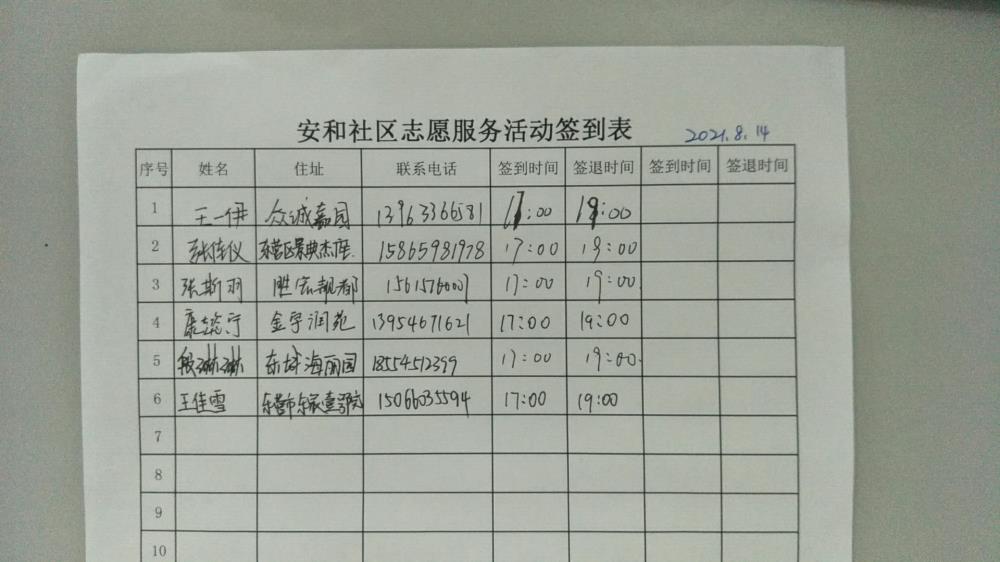 安和社区志愿服务活动签到表 2021.8.14
序号 姓名 住址 联系电话 签到时间 签退时间 签到时间 签退时间
1 王一伊 众诚嘉园 13963366581 17:00 19:00
2 张佳仪 东营区景典杰座. 15865981978 17:00 19:00
3 张斯羽 胜宏靓都 17:00 19:00
4 金宇润苑 13954671621 17:00 19:00
5 段琳琳 东城海丽园 18554512399 17:00 19:00.
6 王佳雪 15066035594 17:00 19:00
7
8
9
10